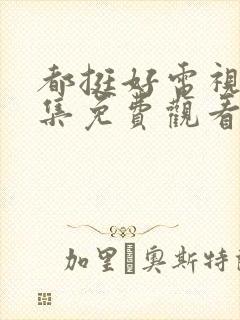 都挺好電視
集免費觀看
加里�奧斯特